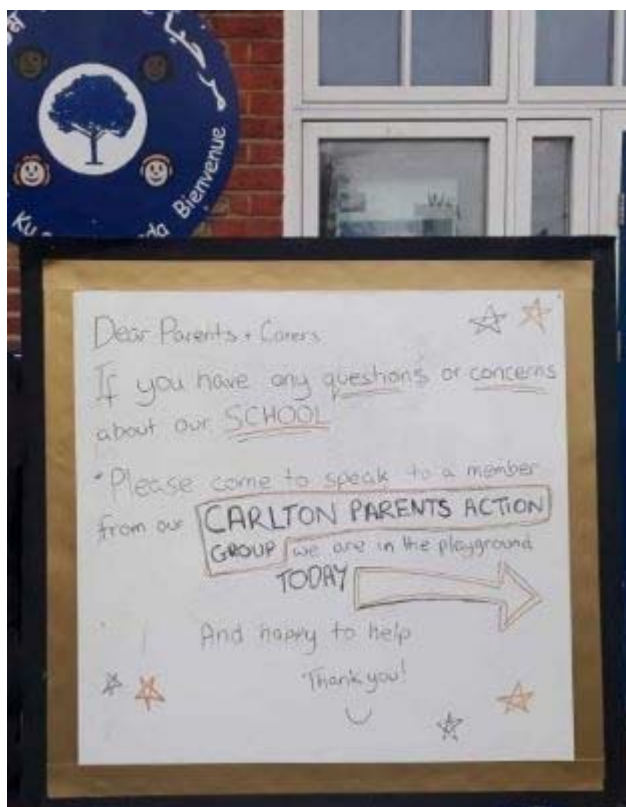 مرحبا
Bienvenue
Ku
da
Dear Parents + Carers
If you have any questions or concerns
about our SCHOOL
*Please come to speak to a member
from our CARLTON PARENTS ACTION
GROUP we are in the playground
TODAY
And happy to help
Thank you!